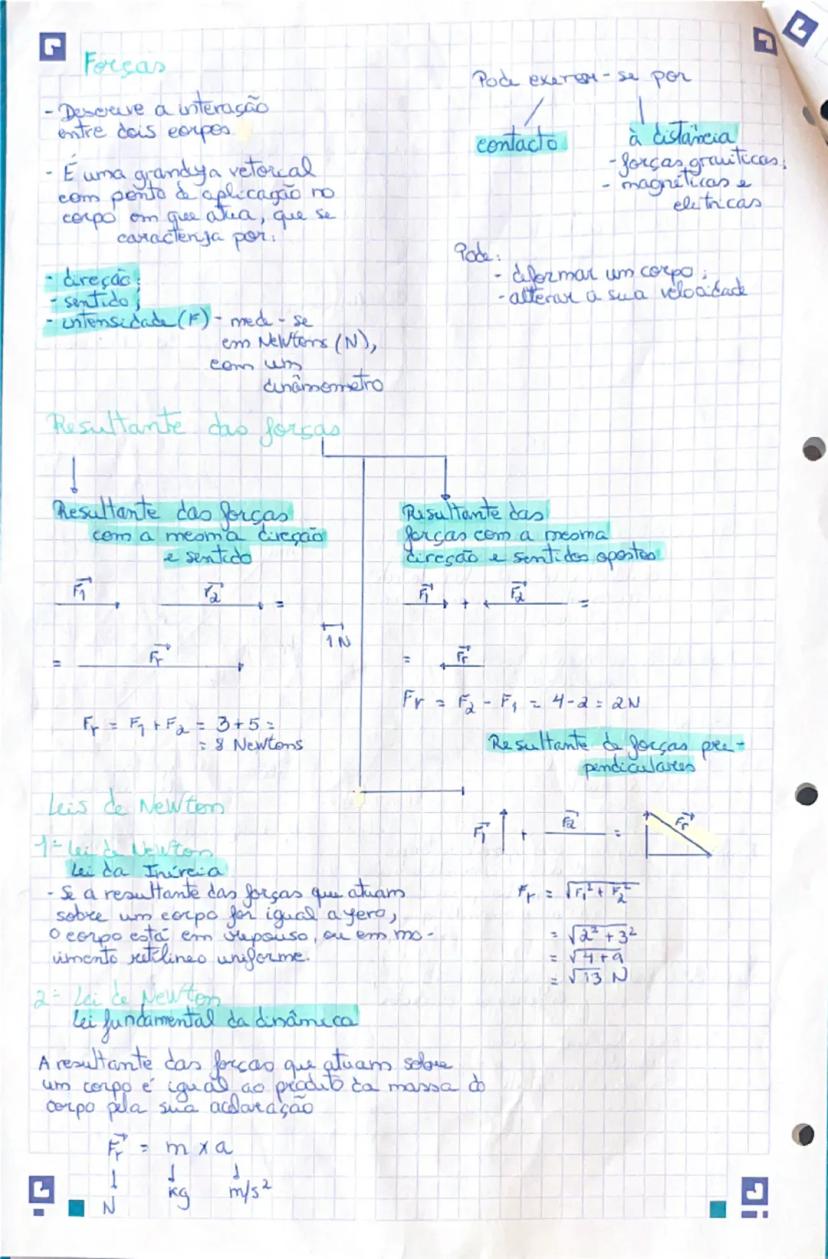 Forças
- Descreve a interação
entre dois corpos
- É uma grandeza vetorial
com ponto de aplicação no
corpo em que atua, que se
caracteriza por:
- direção;
- sentido;
- intensidade (F) - mede-se
em Newtons (N),
com um
dinâmometro
Pode exercer-se por
contacto
à distância
- forças gravíticas;
- magnéticas e
elétricas
Pode:
- deformar um corpo;
- alterar a sua velocidade
Resultante das forças
Resultante das forças
com a mesma direção
e sentido
F₁ F₂ =
= Fr
Fr = F₁ + F₂ = 3+5 =
= 8 Newtons
1N
Resultante das
forças com a mesma
direção e sentidos opostos
F₁ + F₂ =
= Fr
Fr = F₂ - F₁ = 4-2 = 2N
Resultante de forças pre-
pendiculares
F₁ + F₂ = Fr
Fr = √F₁² + F₂²
= √2² + 3²
= √4+9
= √13 N
Leis de Newton
1ª Lei de Newton
Lei da Inércia
- Se a resultante das forças que atuam
sobre um corpo for igual a zero,
o corpo está em repouso, ou em mo-
vimento retilineo uniforme.
2ª Lei de Newton
Lei fundamental da dinâmica
A resultante das forças que atuam sobre
um corpo é igual ao produto da massa do
corpo pela sua aclaração
Fr = m x a
N kg m/s²